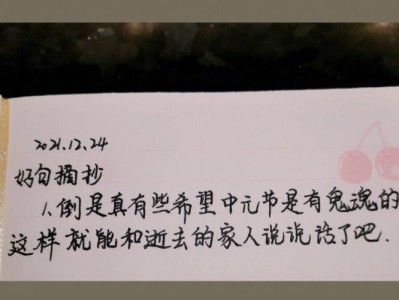 2021.12.24
好句摘抄
1.倒是真有些希望中元节是有鬼魂的
这样就能和逝去的家人说说话了吧.